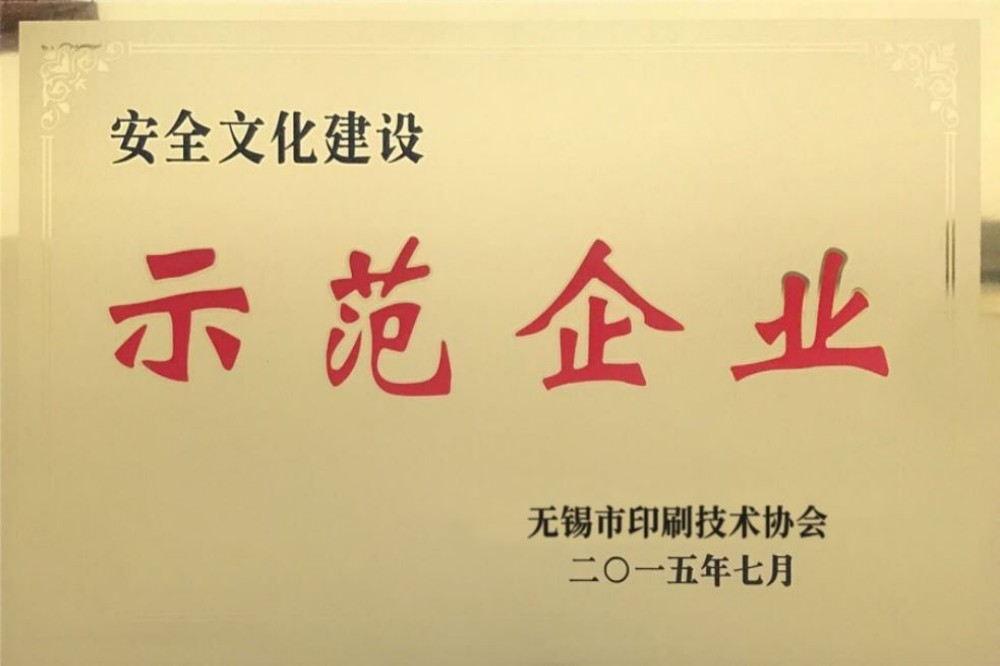 安全文化建设
示范企业
无锡市印刷技术协会
二〇一五年七月